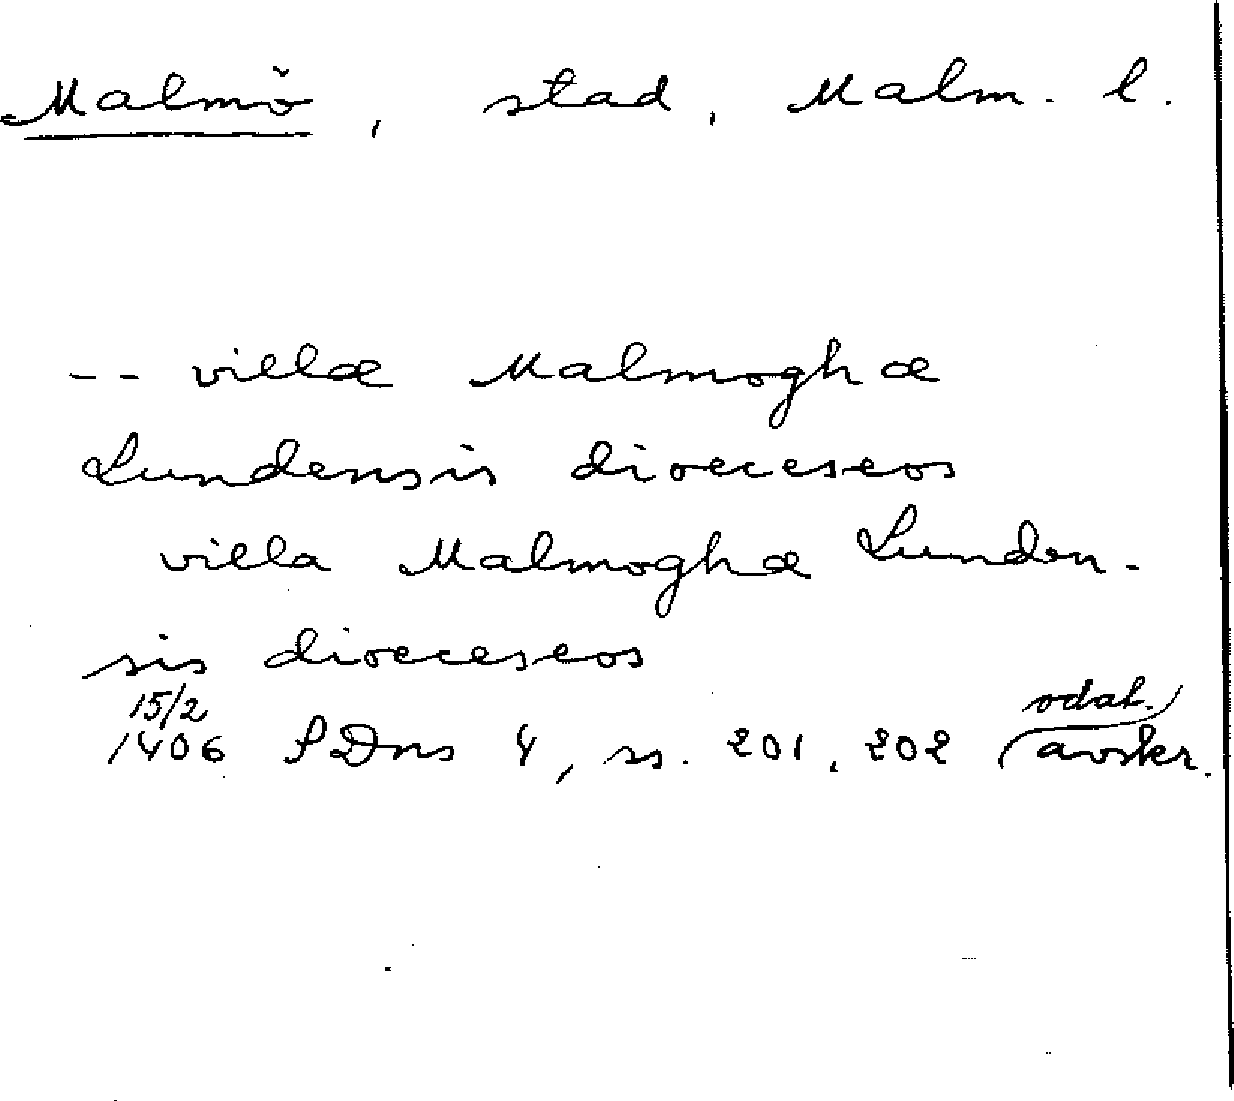 Malmö, stad, Malm. l.
-- villæ Malmoghæ
Lundensis dioeceseos
villa Malmoghæ Lunden-
sis dioeceseos
15/2 odat.)
1406 SDns 4, ss. 201, 202 (avskr.